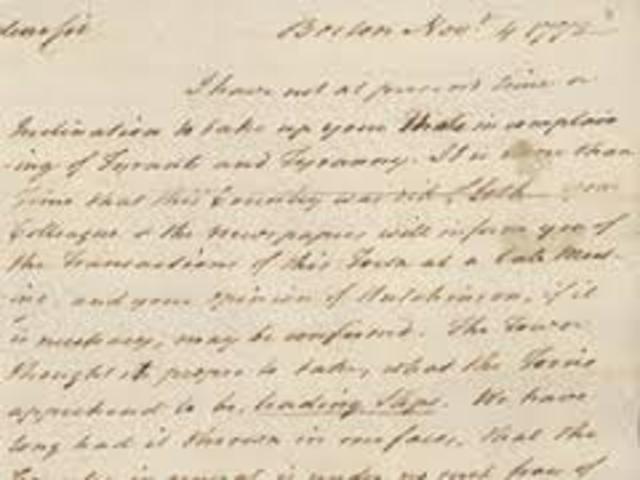 dear Sir Boston Novr 4 1772
I have not at present time or
Inclination to take up your in complain
-ing of Tyrants and Tyranny. It is more than
time that this Country was rid of both your
Colleague & the Newspapers will inform you of
the Transactions of this Town at a late Meet-
ing, and your opinion of Hutchinson, if it
is necessary, may be confirmed. The Town
thought it proper to take, what the Tories
apprehend to be, leading Steps. We have
long had it thrown in our faces, that the
in general is under no such fears of